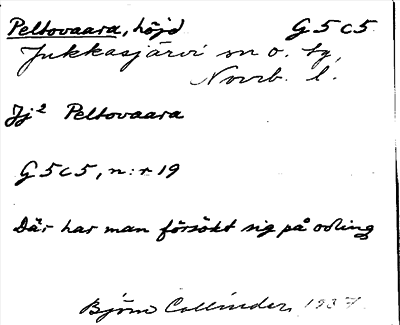 Peltovaara, höjd G5c5
Jukkasjärvi sn o. tg,
Norrb. l.
Jj² Peltovaara
G5c5, n:r 19
Där har man försökt sig på odling
Björn Collinder, 1937.